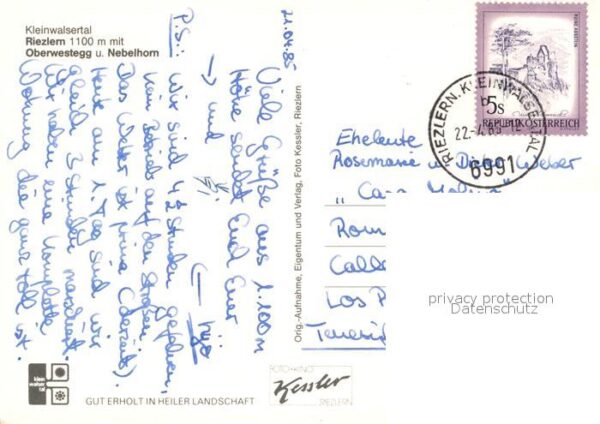 Kleinwalsertal
Riezlern 1100 m mit
Oberwestegg u. Nebelhorn
21.04.85
Viele Grüße aus 1.100 m
Höhe sendet Euch Euer
→ und
P.S.: Wir sind 4½ Stunden gefahren,
kein Betrieb auf den Straßen.
Das Wetter ist prima (derzeit).
Heut am 1. Tag sind wir
gleich 3 Stunden marschiert.
Wir haben eine komplette
Wohnung die ganz toll ist.
Orig.-Aufnahme, Eigentum und Verlag, Foto Kessler, Riezlern
RUINE AGGSTEIN
5s
REPUBLIK ÖSTERREICH
RIEZLERN, KLEINWALSERTAL
6991
Eheleute
Rosemarie u. Weber
" Casa "
Rom
Calle
Los
Tenerif
privacy protection
Datenschutz
klein
walser
tal
GUT ERHOLT IN HEILER LANDSCHAFT
FOTO + KINO
Kessler
RIEZLERN